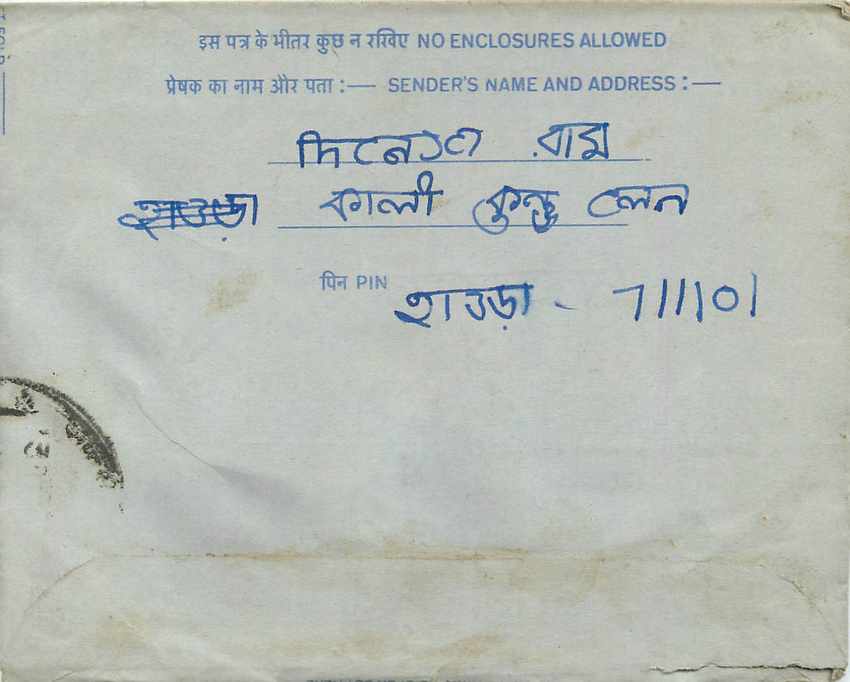 इस पत्र के भीतर कुछ न रखिए NO ENCLOSURES ALLOWED
प्रेषक का नाम और पता :— SENDER'S NAME AND ADDRESS :—
কালী কুন্ডু লেন
पिन PIN হাওড়া - 711101